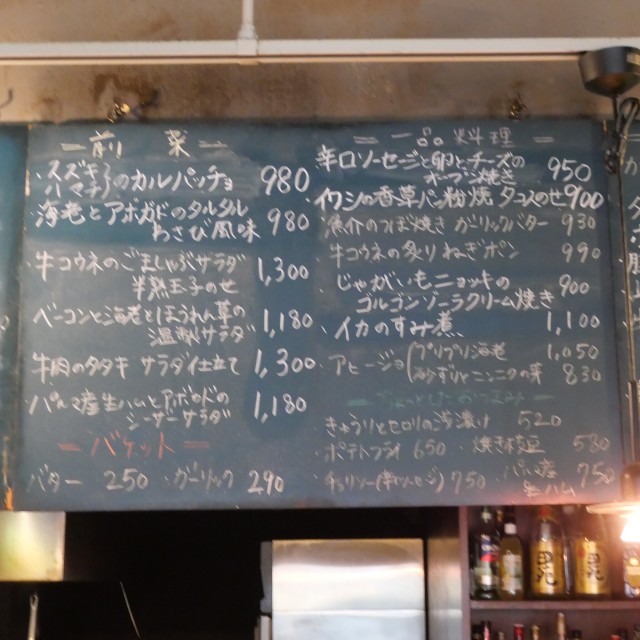 前菜
スズキのカルパッチョ 980
海老とアボガドのタルタル
わさび風味 980
牛コウネのごましゃぶサラダ
半熟玉子のせ 1,300
ベーコンと海老とほうれん草の
温製サラダ 1,180
牛肉のタタキ サラダ仕立て 1,300
パルマ産生ハムとアボガドの
シーザーサラダ 1,180
バケット
バター 250 ・ガーリック 290
一品料理
辛口ソーセージと卵とチーズの
オーブン焼き 950
イワシの香草パン粉焼 タコのせ 900
魚介のつぼ焼き ガーリックバター 930
牛コウネの炙り ねぎポン 990
じゃがいもニョッキの
ゴルゴンゾーラクリーム焼き 900
・イカのすみ煮 1,100
・アヒージョ プリプリ海老 1,050
砂ずりとニンニクの芽 830
きゅうりとセロリの浅漬け 520
ポテトフライ 650 ・焼き枝豆 580
チョリソー(辛口ソーセージ) 750 ・パルマ産
生ハム 750